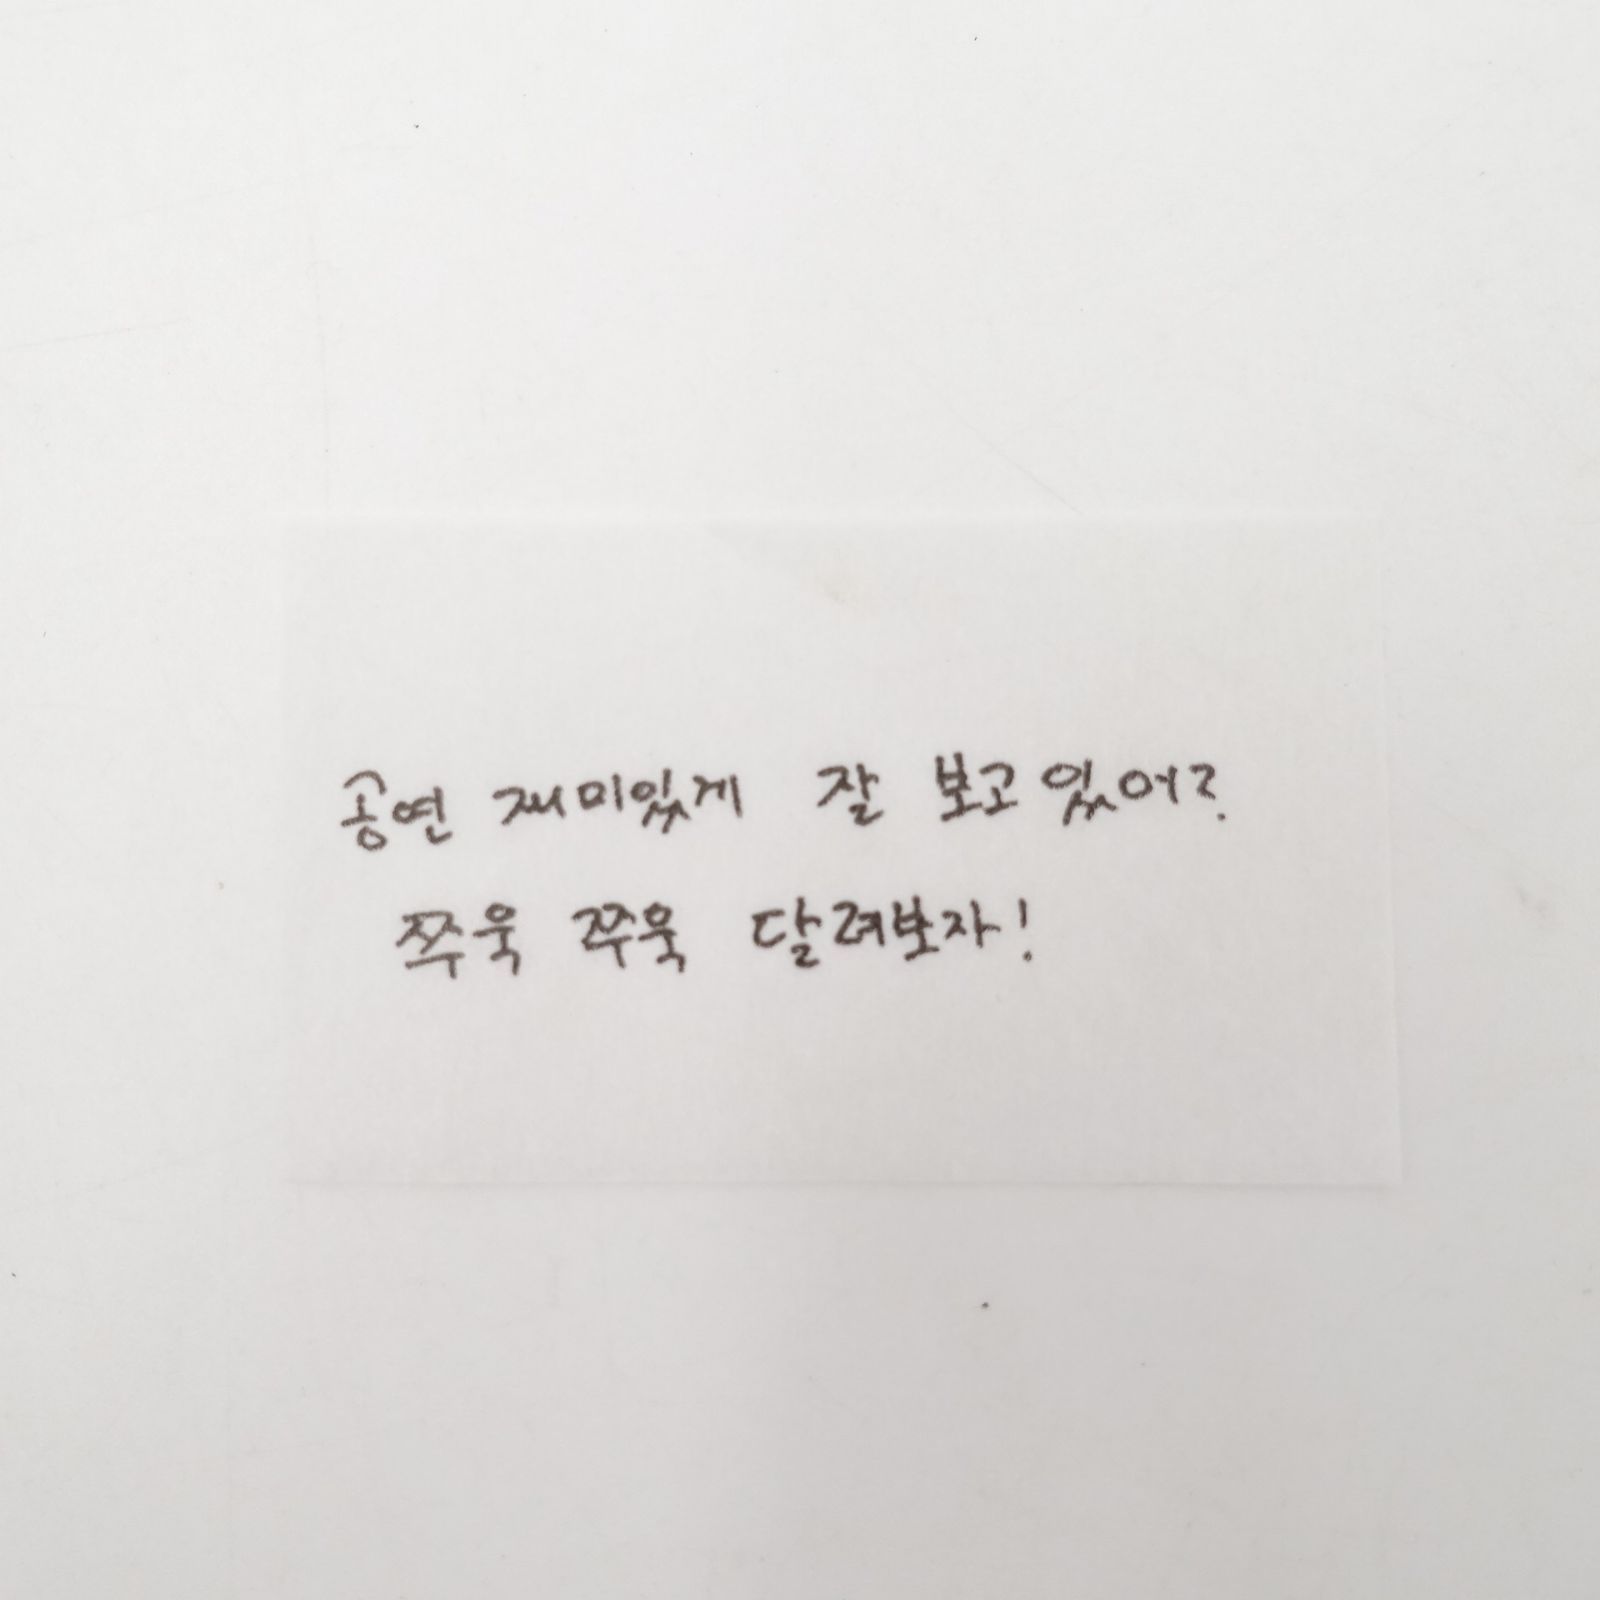 공연 재미있게 잘 보고 있어?
쭈욱 쭈욱 달려보자!